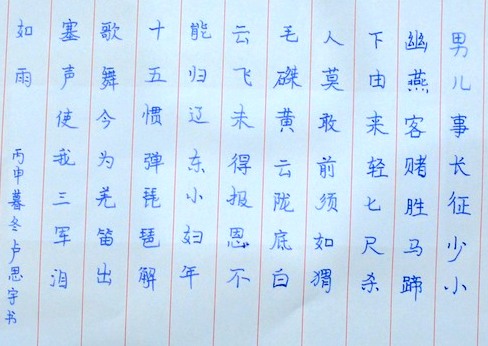 男儿事长征少小
幽燕客赌胜马蹄
下由来轻七尺杀
人莫敢前须如猬
毛磔黄云陇底白
云飞未得报恩不
能归辽东小妇年
十五惯弹琵琶解
歌舞今为羌笛出
塞声使我三军泪
如雨
丙申暮冬卢思宇书